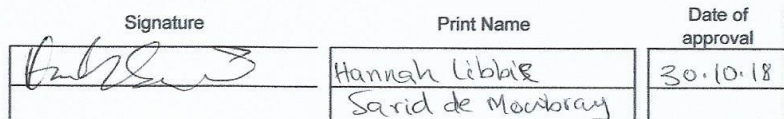 Signature Print Name Date of
approval
Hannah Libbie 30.10.18
Sarid de Mowbray